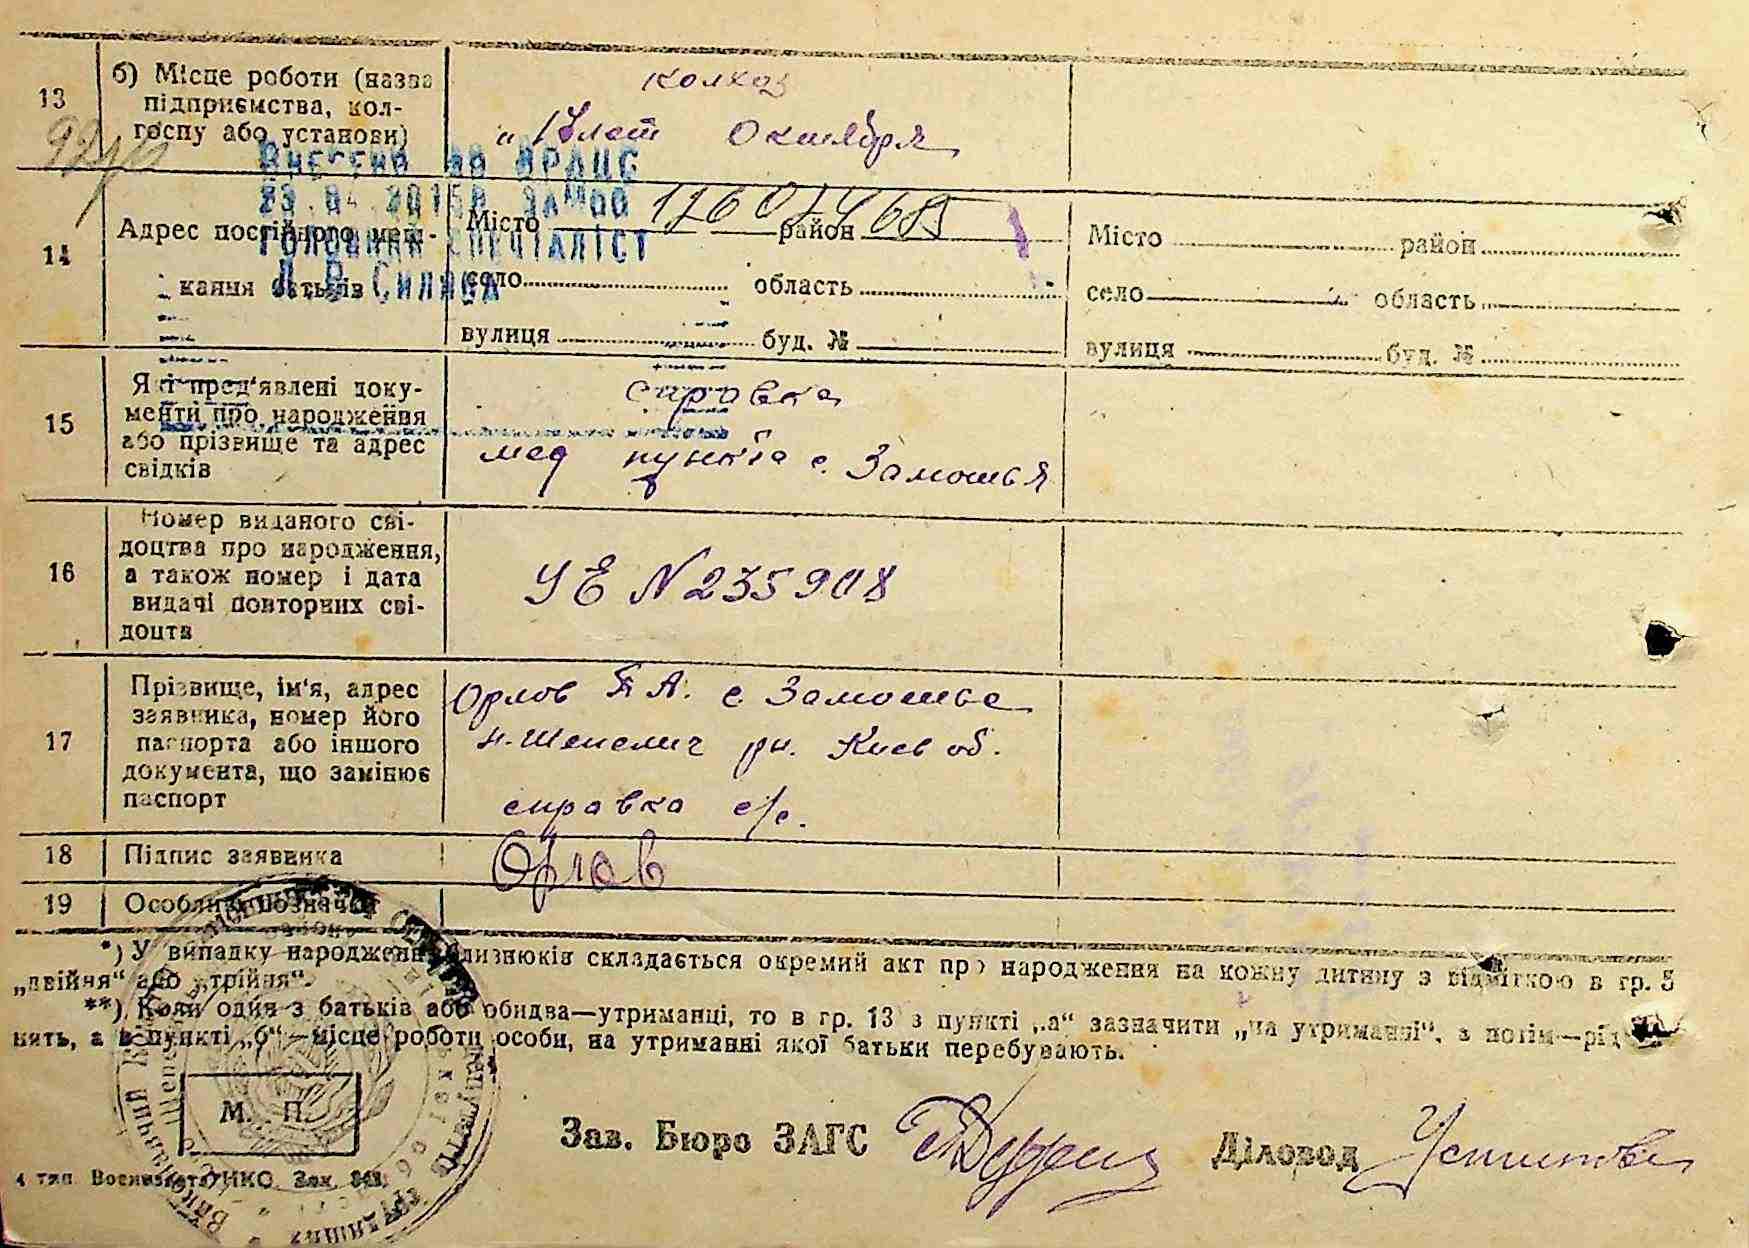 13
б) Місце роботи (назва
підприємства, кол-
госпу або установи)
колхоз
"17 лет Октября
Внесено до ДРАЦС
23.04.2015р. ЗАМОО
Головний спеціаліст
14
Адрес постійного меш-
кання батьків
Місто 126074685 район
село область
вулиця буд. №
Місто район
село область
вулиця буд. №
15
Які пред'явлені доку-
менти про народження
або прізвище та адрес
свідків
справка
мед пункта с. Замошья
16
Номер виданого сві-
доцтва про народження,
а також номер і дата
видачі повторних сві-
доцтв
УЕ N 235908
17
Прізвище, ім'я, адрес
заявника, номер його
паспорта або іншого
документа, що замінює
паспорт
Орлов П. А. с. Замошье
н.-Шепелич рн. Киев об.
справка с/с.
18
Підпис заявника
Орлов
19
Особливі позначки
*) У випадку народження близнюків складається окремий акт про народження на кожну дитину з відміткою в гр. 5
„двійня“ або „трійня“.
**) Коли один з батьків або обидва—утриманці, то в гр. 13 з пункті „а“ зазначити „на утриманні“, а потім—рід
нять, а в пункті „б“—місце роботи особи, на утриманні якої батьки перебувають.
М. П.
Зав. Бюро ЗАГС
Діловод
4 тип НКО Зак.